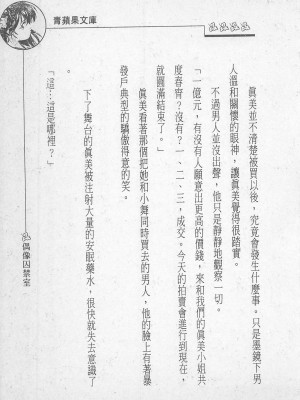 青蘋果文庫
真美並不清楚被買以後，究竟會發生什麼事。只是墨鏡下男
人溫和關懷的眼神，讓真美覺得很踏實。
不過男人並沒出聲，他只是靜靜地觀察一切。
「一億元，有沒有人願意出更高的價錢，來和我們的真美小姐共
度春宵？沒有？一、二、三，成交。今天的拍賣會進行到現在，
就圓滿結束了。」
真美看著那個把她和小舞同時買去的男人，他的臉上有著暴
發戶典型的驕傲得意的笑。
下了舞台的真美被注射大量的安眠藥水，很快就失去意識了
。
「這…這是哪裡？」
偶像囚禁室